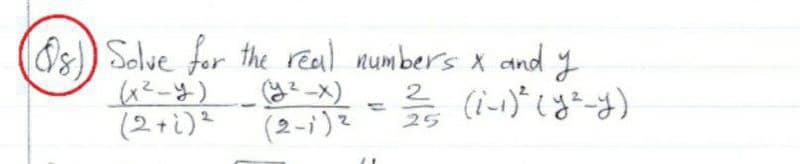 Q8) Solve for the real numbers x and y
(x²-y)/(2+i)² - (y²-x)/(2-i)² = 2/25 (i-1)² (y²-y)